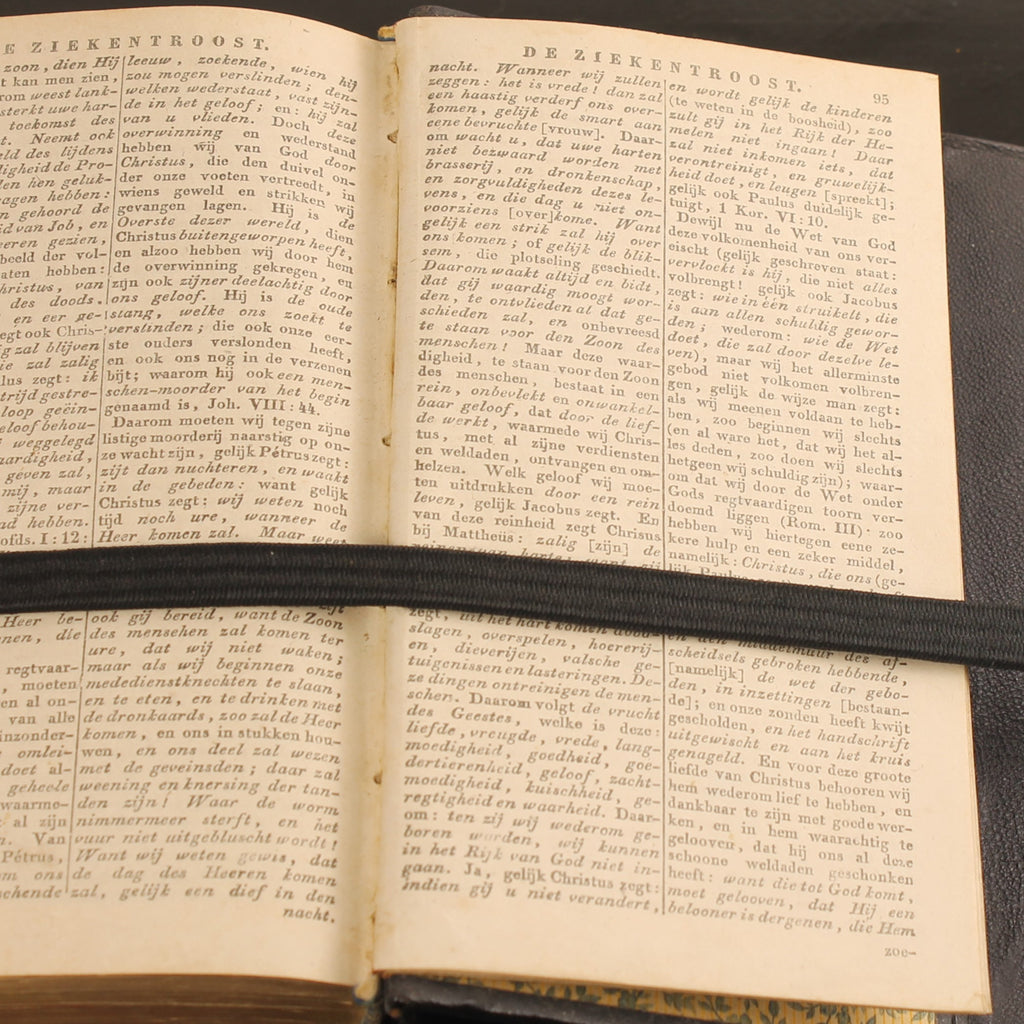 E ZIEKENTROOST.
zoon, dien Hij
t kan men zien,
rom weest lank-
sterkt uwe har-
toekomst des
t. Neemt ook
eld des lijdens
digheid de Pro-
len hen geluk-
agen hebben:
n gehoord de
id van Job, en
eren gezien,
beeld der vol-
aten hebben:
hristus, van
des doods.
en eer ge-
egt ook Chris-
ig zal blijven
ie zal zalig
lus zegt: ik
trijd gestre-
loop geëin-
eloof behou-
weggelegd
aardigheid,
geven zal,
mij, maar
zijne ver-
nd hebben.
ofds. I: 12:
Heer be-
nen, die
regtvaar-
, moeten
en al on-
van alle
inzonder-
omlei-
doet al-
geheele
waarme-
al zijn
n. Van
Pétrus,
m ons
chende
leeuw, zoekende, wien hij
zou mogen verslinden; den-
welken wederstaat, vast zijn-
de in het geloof; en: hij zal
van u vlieden. Doch deze
overwinning en wederstand
hebben wij van God door
Christus, die den duivel on-
der onze voeten vertreedt, in
wiens geweld en strikken wij
gevangen lagen. Hij is de
Overste dezer wereld, dien
Christus buitengeworpen heeft,
en alzoo hebben wij door hem
de overwinning gekregen, en
zijn ook zijner deelachtig door
ons geloof. Hij is de oude
slang, welke ons zoekt te
verslinden; die ook onze eer-
ste ouders verslonden heeft,
en ook ons nog in de verzenen
bijt; waarom hij ook een men-
schen-moorder van het begin
genaamd is, Joh. VIII: 44.
Daarom moeten wij tegen zijne
listige moorderij naarstig op on-
ze wacht zijn, gelijk Pétrus zegt:
zijt dan nuchteren, en waakt
in de gebeden: want gelijk
Christus zegt: wij weten noch
tijd noch ure, wanneer de
Heer komen zal. Maar weet
ook gij bereid, want de Zoon
des menschen zal komen ter
ure, dat wij niet waken;
maar als wij beginnen onze
mededienstknechten te slaan,
en te eten, en te drinken met
de dronkaards, zoo zal de Heer
komen, en ons in stukken hou-
wen, en ons deel zal wezen
met de geveinsden; daar zal
weening en knersing der tan-
den zijn! Waar de worm
nimmermeer sterft, en het
vuur niet uitgebluscht wordt!
Want wij weten gewis, dat
de dag des Heeren komen
zal, gelijk een dief in den
nacht.
DE ZIEKENTROOST. 95
nacht. Wanneer wij zullen
zeggen: het is vrede! dan zal
een haastig verderf ons over-
komen, gelijk de smart aan
eene bevruchte [vrouw]. Daar-
om wacht u, dat uwe harten
niet bezwaard worden met
brasserij, en dronkenschap,
en zorgvuldigheden dezes le-
vens, en die dag u niet on-
voorziens [over]kome. Want
gelijk een strik zal hij over
ons komen; of gelijk de blik-
sem, die plotseling geschiedt.
Daarom waakt altijd en bidt,
dat gij waardig moogt wor-
den, te ontvlieden al dat ge-
schieden zal, en onbevreesd
te staan voor den Zoon des
menschen! Maar deze waar-
digheid, te staan voor den Zoon
des menschen, bestaat in een
rein, onbevlekt en onwankel-
baar geloof, dat door de lief-
de werkt, waarmede wij Chris-
tus, met al zijne verdiensten
en weldaden, ontvangen en om-
helzen. Welk geloof wij moe-
ten uitdrukken door een rein
leven, gelijk Jacobus zegt. En
van deze reinheid zegt Chrisus
bij Mattheüs: zalig [zijn] de
zegt, uit het hart komen doodslagen
slagen, overspelen, hoererij-
en, dieverijen, valsche ge-
tuigenissen en lasteringen. De-
ze dingen ontreinigen de men-
schen. Daarom volgt de vrucht
des Geestes, welke is deze:
liefde, vreugde, vrede, lang-
moedigheid, goedheid, goe-
dertierenheid, geloof, zacht-
moedigheid, kuischheid, ge-
regtigheid en waarheid. Daar-
om: ten zij wij wederom ge-
boren worden, wij kunnen
in het Rijk van God niet in-
gaan. Ja, gelijk Christus zegt:
indien gij u niet verandert,
en wordt gelijk de kinderen
(te weten in de boosheid), zoo
zult gij in het Rijk der He-
melen niet ingaan! Daar
zal niet inkomen iets, dat
verontreinigt, en gruwelijk-
heid doet, en leugen [spreekt];
gelijk ook Paulus duidelijk ge-
tuigt, 1 Kor. VI: 10.
Dewijl nu de Wet van God
deze volkomenheid van ons ver-
eischt (gelijk geschreven staat:
vervloekt is hij, die niet alles
volbrengt! gelijk ook Jacobus
zegt: wie in één struikelt, die
is aan allen schuldig gewor-
den; wederom: wie de Wet
doet, die zal door dezelve le-
ven), maar wij het allerminste
gebod niet volkomen volbren-
gen, gelijk de wijze man zegt:
als wij meenen voldaan te heb-
ben, zoo beginnen wij slechts
(en al ware het, dat wij het al-
les deden, zoo doen wij slechts
hetgeen wij schuldig zijn); waar-
om dat wij door de Wet onder
Gods regtvaardigen toorn ver-
doemd liggen (Rom. III): zoo
hebben wij hiertegen eene ze-
kere hulp en een zeker middel,
namelijk: Christus, die ons (ge-
en den middelmuur des af-
scheidsels gebroken hebbende,
[namelijk] de wet der gebo-
den, in inzettingen [bestaan-
de]; en onze zonden heeft kwijt
gescholden, en het handschrift
uitgewischt en aan het kruis
genageld. En voor deze groote
liefde van Christus behooren wij
hem wederom lief te hebben, en
dankbaar te zijn met goede wer-
ken, en in hem waarachtig te
gelooven, dat hij ons al deze
schoone weldaden geschonken
heeft: want die tot God komt,
moet gelooven, dat Hij een
belooner is dergenen, die Hem
zoe-